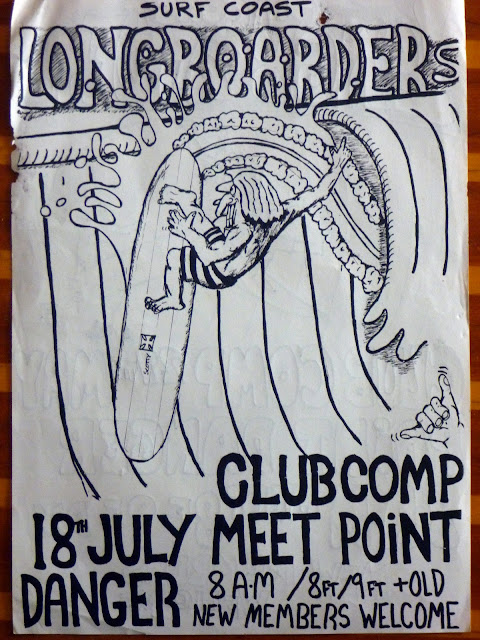 SURF COAST
LONGBOARDERS
CLUB COMP
18TH JULY MEET POiNT
DANGER 8 A.M /8FT/9FT +OLD
NEW MEMBERS WELCOME